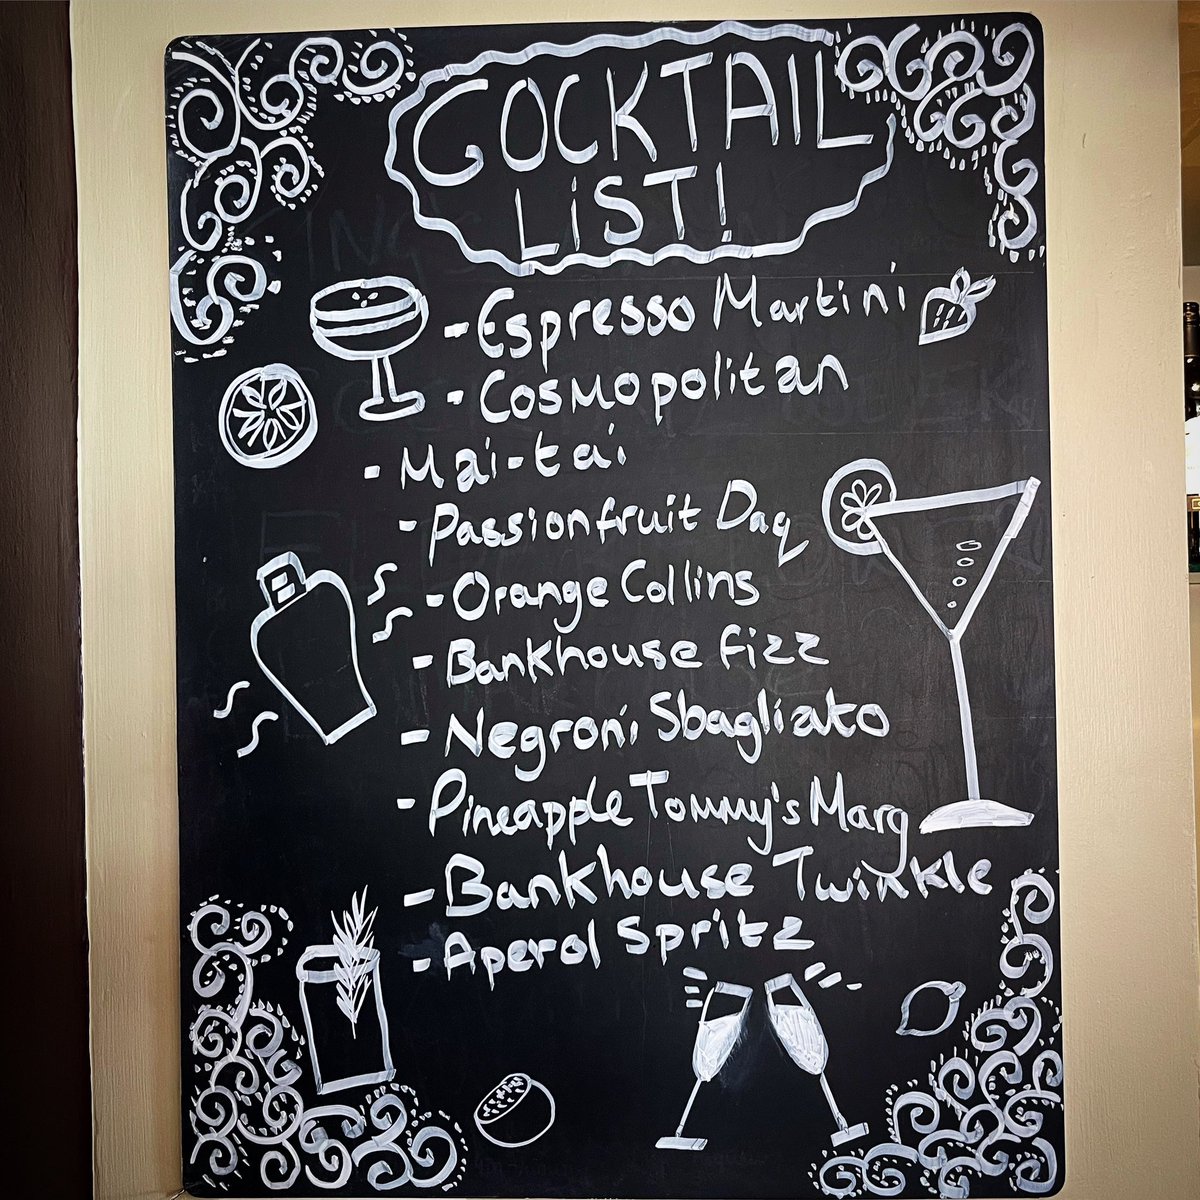 COCKTAIL
LiST!
- Espresso Martini
- Cosmopolitan
- Mai-tai
- Passionfruit Daq
- Orange Collins
- Bankhouse fizz
- Negroni Sbagliato
- Pineapple Tommy's Marg
- Bankhouse Twinkle
- Aperol Spritz